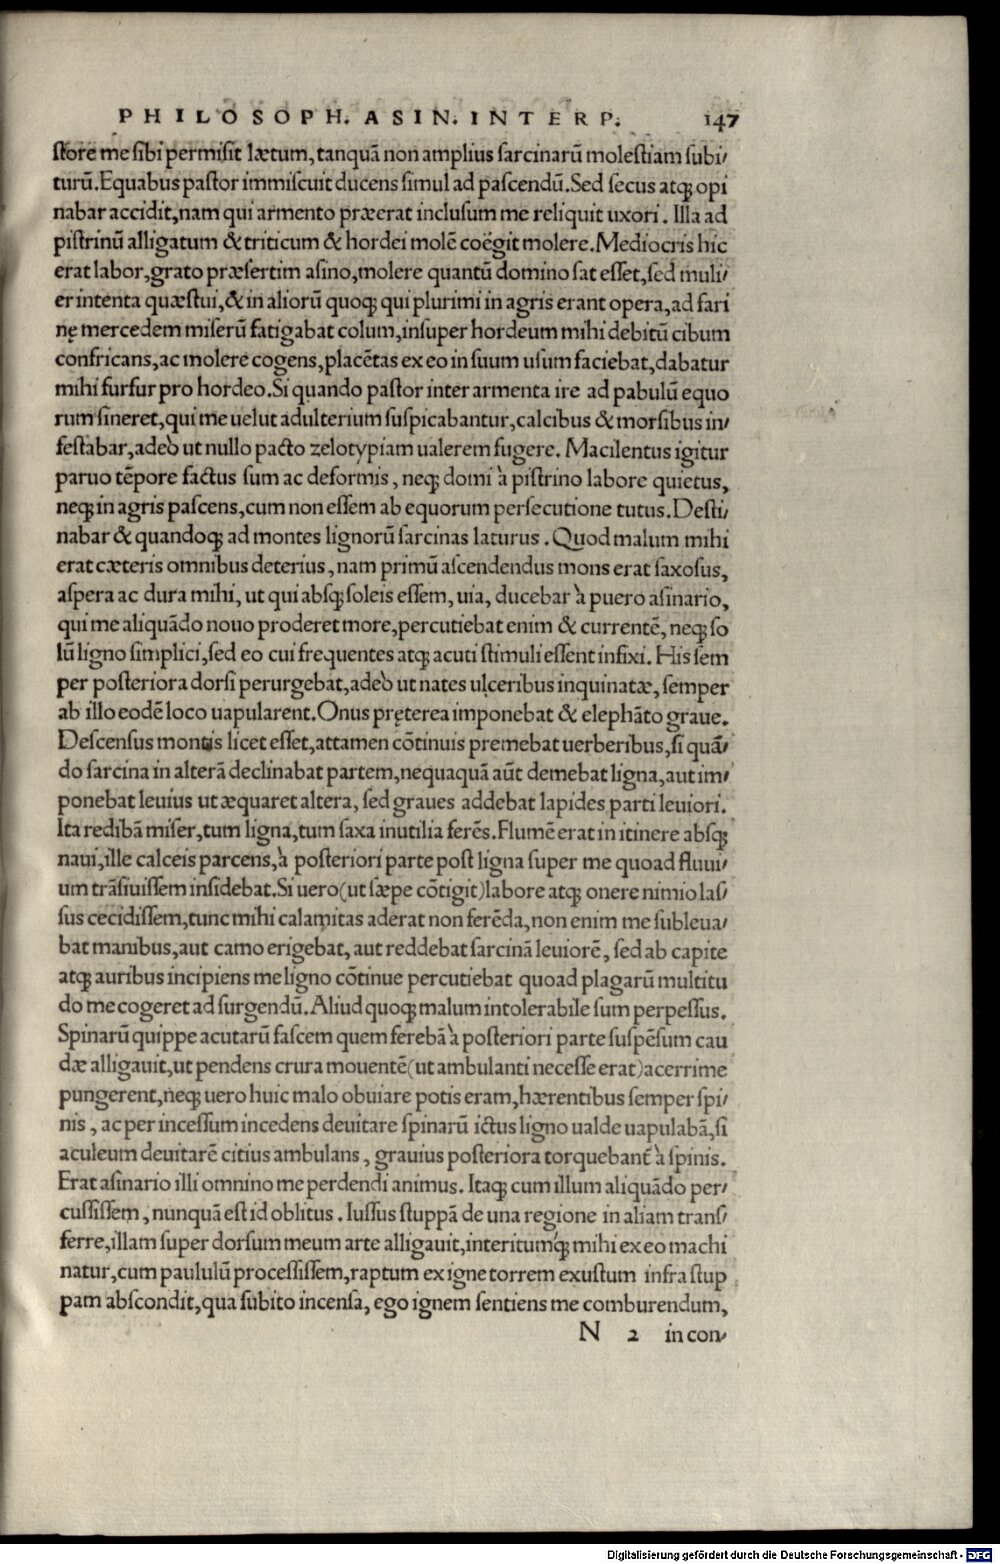 PHILOSOPH. ASIN. INTERP. 147
ſtore me ſibi permiſit lætum, tanquā non amplius ſarcinarū moleſtiam ſubi/
turū. Equabus paſtor immiſcuit ducens ſimul ad paſcendū. Sed ſecus atq; opi
nabar accidit, nam qui armento præerat incluſum me reliquit uxori. Illa ad
piſtrinū alligatum & triticum & hordei molē coëgit molere. Mediocris hic
erat labor, grato præſertim aſino, molere quantū domino ſat eſſet, ſed muli/
er intenta quæſtui, & in aliorū quoq; qui plurimi in agris erant opera, ad fari
nę mercedem miſerū fatigabat colum, inſuper hordeum mihi debitū cibum
confricans, ac molere cogens, placētas ex eo in ſuum uſum faciebat, dabatur
mihi furfur pro hordeo. Si quando paſtor inter armenta ire ad pabulū equo
rum ſineret, qui me uelut adulterium ſuſpicabantur, calcibus & morſibus in/
feſtabar, adeò ut nullo pacto zelotypiam ualerem fugere. Macilentus igitur
paruo tēpore factus ſum ac deformis, neq; domi à piſtrino labore quietus,
neq; in agris paſcens, cum non eſſem ab equorum perſecutione tutus. Deſti/
nabar & quandoq; ad montes lignorū ſarcinas laturus. Quod malum mihi
erat cæteris omnibus deterius, nam primū aſcendendus mons erat ſaxoſus,
aſpera ac dura mihi, ut qui abſq; ſoleis eſſem, uia, ducebar à puero aſinario,
qui me aliquādo nouo proderet more, percutiebat enim & currentē, neq; ſo
lū ligno ſimplici, ſed eo cui frequentes atq; acuti ſtimuli eſſent infixi. His ſem
per poſteriora dorſi perurgebat, adeò ut nates ulceribus inquinatæ, ſemper
ab illo eodē loco uapularent. Onus pręterea imponebat & elephāto graue.
Deſcenſus montis licet eſſet, attamen cōtinuis premebat uerberibus, ſi quā/
do ſarcina in alterā declinabat partem, nequaquā aūt demebat ligna, aut im/
ponebat leuius ut æquaret altera, ſed graues addebat lapides parti leuiori.
Ita redibā miſer, tum ligna, tum ſaxa inutilia ferēs. Flumē erat in itinere abſq;
naui, ille calceis parcens, à poſteriori parte poſt ligna ſuper me quoad fluui/
um trāſiuiſſem inſidebat. Si uero (ut ſæpe cōtigit) labore atq; onere nimio laſ/
ſus cecidiſſem, tunc mihi calamitas aderat non ferēda, non enim me ſubleua/
bat manibus, aut camo erigebat, aut reddebat ſarcinā leuiorē, ſed ab capite
atq; auribus incipiens me ligno cōtinue percutiebat quoad plagarū multitu
do me cogeret ad ſurgendū. Aliud quoq; malum intolerabile ſum perpeſſus.
Spinarū quippe acutarū faſcem quem ferebā à poſteriori parte ſuſpēſum cau
dæ alligauit, ut pendens crura mouentē (ut ambulanti neceſſe erat) acerrime
pungerent, neq; uero huic malo obuiare potis eram, hærentibus ſemper ſpi/
nis, ac per inceſſum incedens deuitare ſpinarū ictus ligno ualde uapulabā, ſi
aculeum deuitarē citius ambulans, grauius poſteriora torquebant̄ à ſpinis.
Erat aſinario illi omnino me perdendi animus. Itaq; cum illum aliquādo per/
cuſſiſſem, nunquā eſt id oblitus. Iuſſus ſtuppā de una regione in aliam tranſ/
ferre, illam ſuper dorſum meum arte alligauit, interitumq́; mihi ex eo machi
natur, cum paululū proceſſiſſem, raptum ex igne torrem exuſtum infra ſtup
pam abſcondit, qua ſubito incenſa, ego ignem ſentiens me comburendum,
N 2 in con/
Digitalisierung gefördert durch die Deutsche Forschungsgemeinschaft - DFG